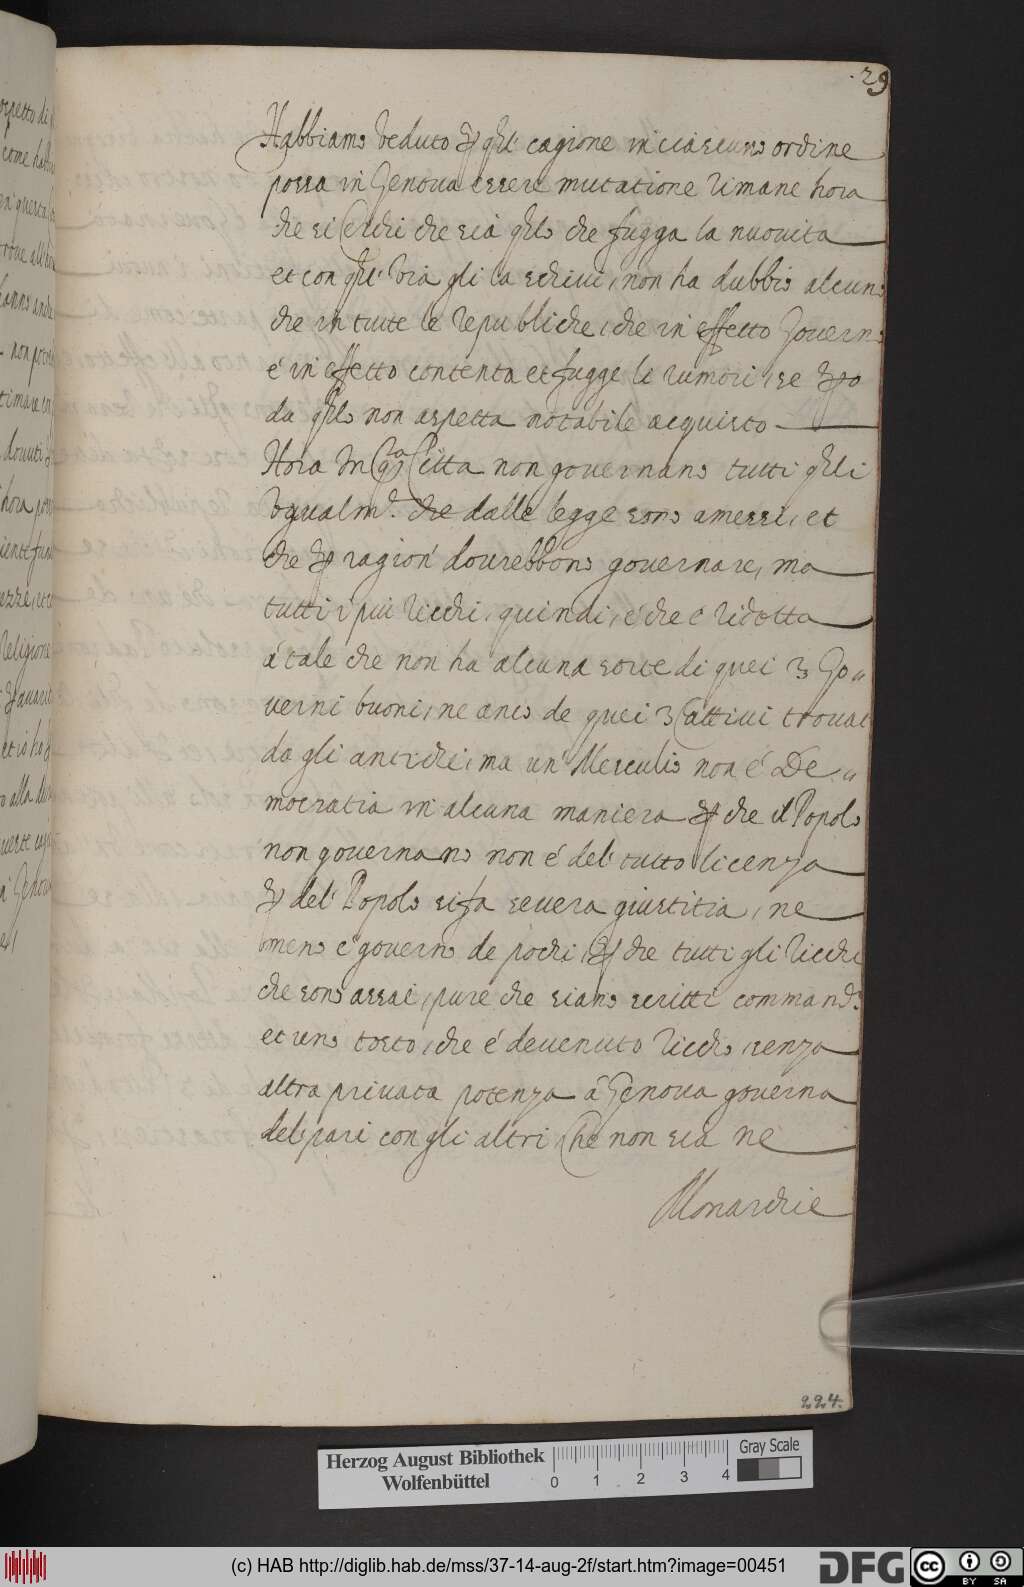 29
Habbiamo veduto ꝑ qȝl' cagione in ciascuno ordine
possa in Genova essere mutatione rimane hora
che si cerchi che sià qȝlo che fugga la nuouita
et con qȝl' via gli la schiui, non ha dubbio alcuno
che in tutte le republiche, che in effetto Governo
é in effetto contenta et fugge li rumori, se
da qȝlo non aspetta notabile acquisto
Hora In qsta Citta non governano tutti qȝli
Vgualmte. che dalle legge sono amessi, et
che ꝑ ragion' dourebbono governare, ma
tutti i più ricchi, quindi, é che é ridotta
á tale che non ha alcuna sorte di quei 3 Go„
verni buoni, ne anco de quei 3 Cattivi trovat
da gli antichi, ma un' Mesculio non é De„
mocratia in alcuna maniera ꝑ che il Popolo
non governano non é del' tutto licenza
ꝑ del' Popolo si fa severa giustitia, ne
omeno é governo de pochi, ꝑ che tutti gli ricchi
che sono assai, pure che siano scritti commando
et uno tosto, che é devenuto riccho, senza
altra privata potenza á Genova governa
del pari con gli altri, Che non sia ne
Monarchie
224.
ospetto di
come ha
non
timare con
douuti
hora
iente
ezze, et
Religione
et io ho
o alla
Genou
Herzog August Bibliothek
Wolfenbüttel
0 1 2 3 4
Gray Scale
(c) HAB http://diglib.hab.de/mss/37-14-aug-2f/start.htm?image=00451
DFG
cc BY SA